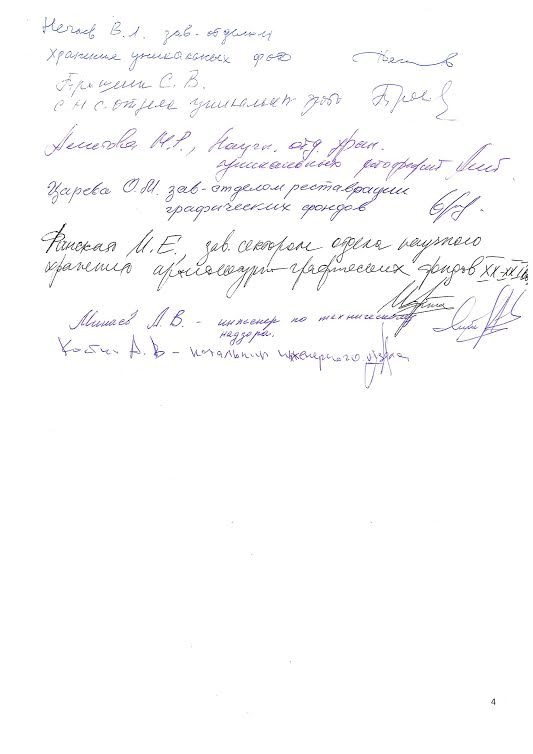 Нечаев В.Л. зав. отделом
хранения уникальных фото
С. В.
с н с. отдела уникальных фото
Научн. отд. хран.
уникальных фотографий
Царева О.М. зав. отделом реставрации
графических фондов
Финская М.Е. зав. сектором отдела научного
хранения архитектурно-графических фондов XX-XXIвв.
Минаев Л.В. - инженер по техническому
надзора.
А. В - начальник инженерного
4